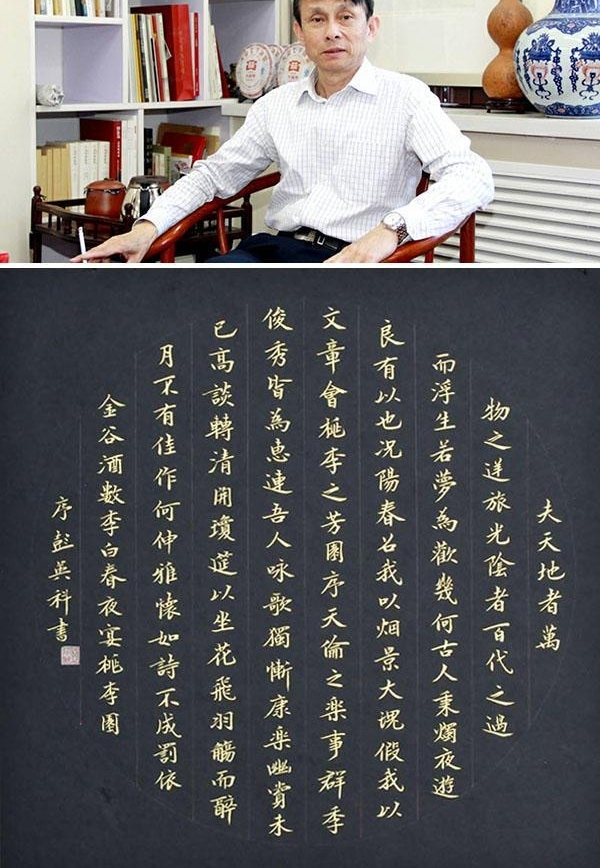 夫天地者萬
物之逆旅光陰者百代之過
而浮生若夢為歡幾何古人秉燭夜遊
良有以也况陽春召我以烟景大塊假我以
文章會桃李之芳園序天倫之楽事群季
俊秀皆為惠連吾人咏歌獨慚康楽幽賞未
已高談轉清開瓊筵以坐花飛羽觴而醉
月不有佳作何伸雅懷如詩不成罰依
金谷酒數李白春夜宴桃李園
序彭吳科書